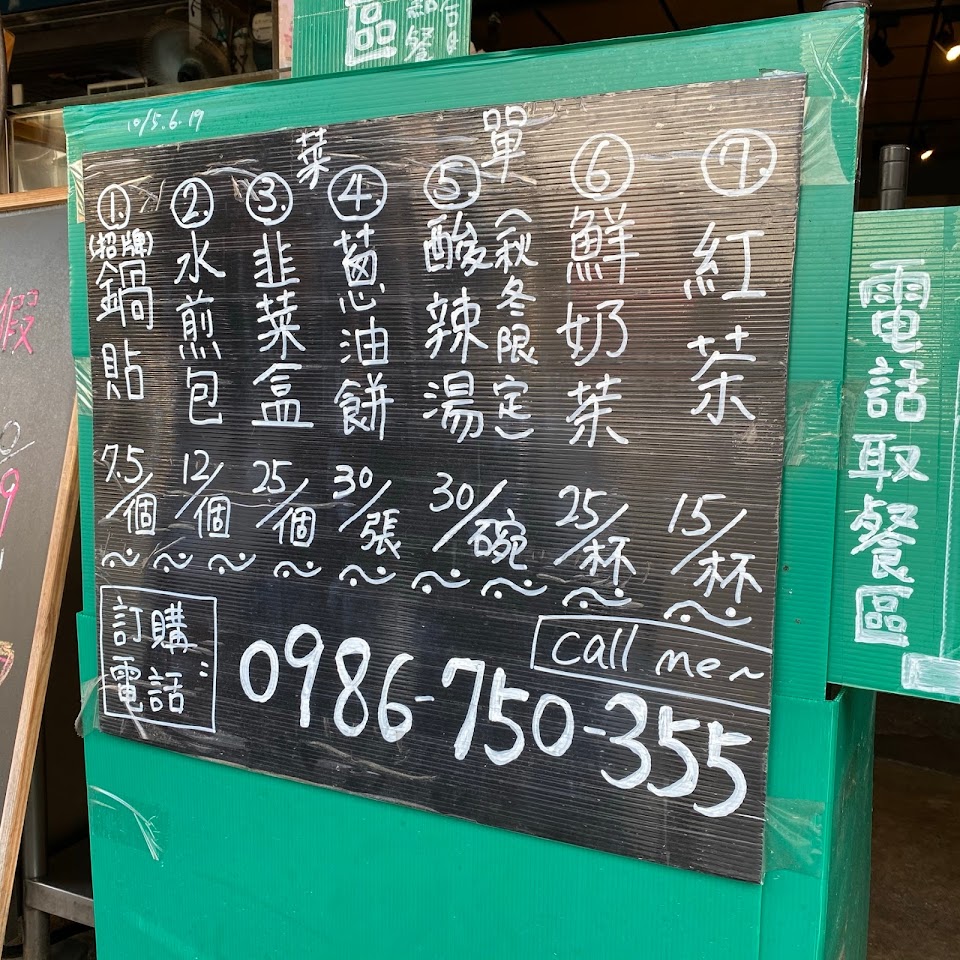 區
點餐
10/5.6.19
菜單
①(招牌)鍋貼 7.5/個
②水煎包 12/個
③韭菜盒 25/個
④蔥油餅 30/張
⑤酸辣湯(秋冬限定) 30/碗
⑥鮮奶茶 25/杯
⑦紅茶 15/杯
訂購電話:
call me~
0986-750-355
電話取餐區
假